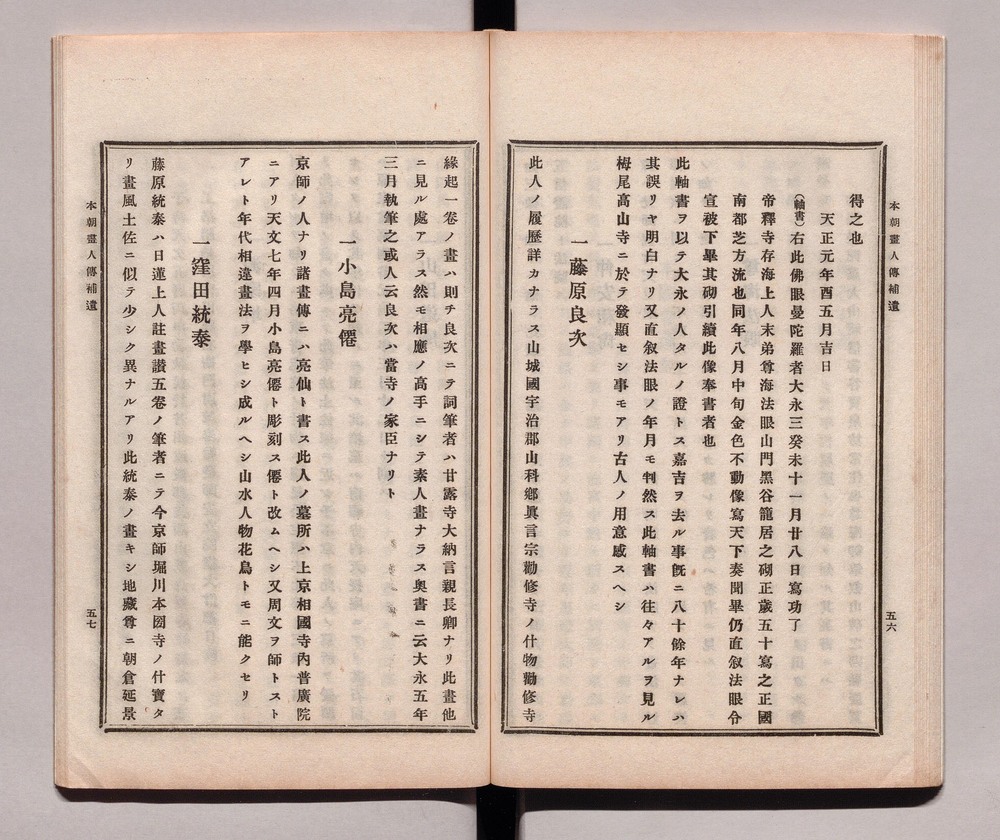 本朝畫人傳補遺
得之也
天正元年酉五月吉日
(軸書)右此佛眼曼陀羅者大永三癸未十一月廿八日寫功了
帝釋寺存海上人末弟尊海法眼山門黑谷籠居之砌正歲五十寫之正國
南都芝方流也同年八月中旬金色不動像寫天下奏聞畢仍直叙法眼令
宣被下畢其砌引續此像奉書者也
此軸書ヲ以テ大永ノ人タルノ證トス嘉吉ヲ去ル事旣ニ八十餘年ナレハ
其誤リヤ明白ナリ又直叙法眼ノ年月モ判然ス此軸書ハ往々アルヲ見ル
栂尾高山寺ニ於テ發顯セシ事モアリ古人ノ用意感スヘシ
一藤原良次
此人ノ履歷詳カナラス山城國宇治郡山科鄕眞言宗勸修寺ノ什物勸修寺
五六
緣起一卷ノ畫ハ則チ良次ニテ詞筆者ハ甘露寺大納言親長卿ナリ此畫他
ニ見ル處アラス然モ相應ノ高手ニシテ素人畫ナラス奥書ニ云大永五年
三月執筆之或人云良次ハ當寺ノ家臣ナリト
一小島亮僊
京師ノ人ナリ諸畫傳ニハ亮仙ト書ス此人ノ墓所ハ上京相國寺內普廣院
ニアリ天文七年四月小島亮僊ト彫刻ス僊ト改ムヘシ又周文ヲ師トスト
アレト年代相違畫法ヲ學ヒシ成ルヘシ山水人物花鳥トモニ能クセリ
一窪田統泰
藤原統泰ハ日蓮上人註畫讚五卷ノ筆者ニテ今京師堀川本圀寺ノ什寶タ
リ畫風土佐ニ似テ少シク異ナルアリ此統泰ノ畫キシ地藏尊ニ朝倉延景
本朝畫人傳補遺
五七